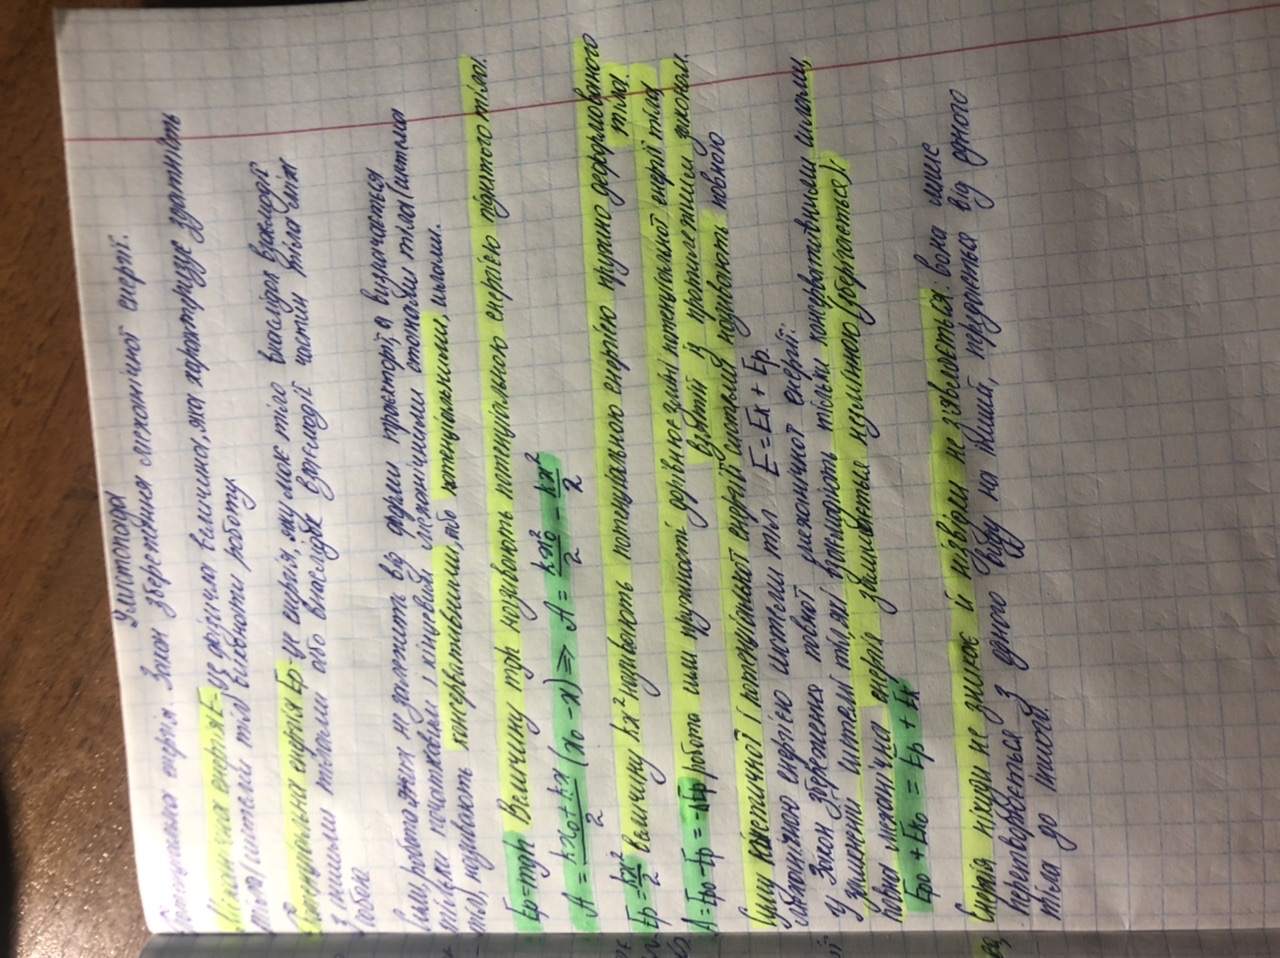 7 листопада
Потенціальна енергія. Закон збереження механічної енергії.
Механічна енергія E - це фізична величина, яка характеризує здатність
тіла (системи тіл) виконати роботу.
Потенціальна енергія Ep - це енергія, яку має тіло внаслідок взаємодії
з іншими тілами або внаслідок взаємодії частин тіла між
собою
Сили, робота яких не залежить від форми траєкторії, а визначається
тільки початковим і кінцевим механічними станами тіла (системи
тіл), називають консервативними, або потенціальними, силами.
Ep = mgh Величину mgh називають потенціальною енергією піднятого тіла.
A = kx₀ + kx / 2 (x₀ - x) => A = kx₀² / 2 - kx² / 2
Ep = kx² / 2 величину kx² називають потенціальною енергією пружно деформованого
тіла.
A = Ep₀ - Ep = -ΔEp робота сили пружності дорівнює зміні потенціальної енергії тіла
взятій із протилежним знаком.
Суму кінетичної і потенціальної енергій системи називають повною
механічною енергією системи тіл E = Ek + Ep.
Закон збереження повної механічної енергії:
У замкненій системі тіл, які взаємодіють тільки консервативними силами,
повна механічна енергія залишається незмінною (зберігається);
Ep₀ + Ek₀ = Ep + Ek
Енергія нікуди не зникає й нізвідки не з'являється: вона лише
перетворюється з одного виду на інший, передається від одного
тіла до іншого.